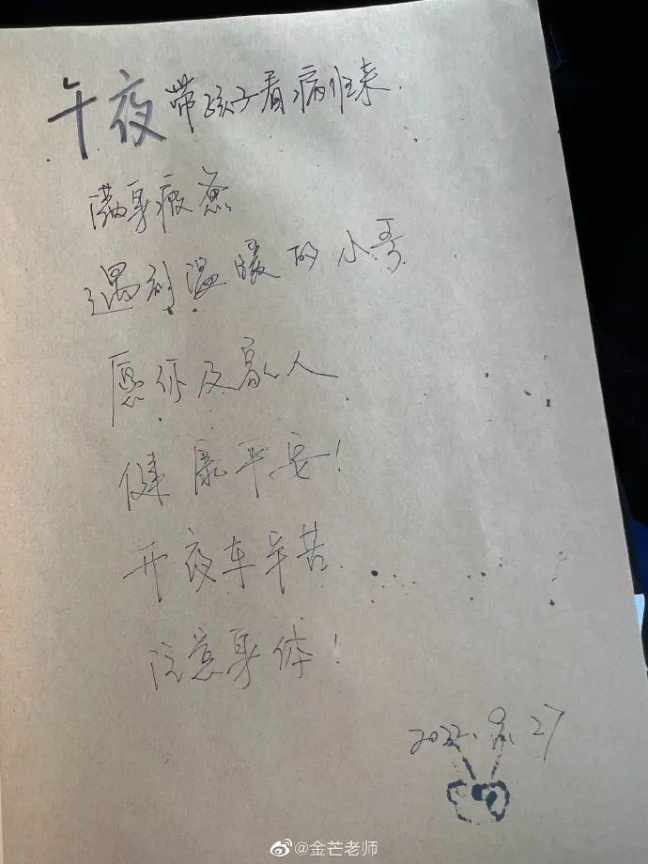 午夜带孩子看病归来
满身疲惫
遇到温暖的小哥
愿你及家人
健康平安!
开夜车辛苦
注意身体!
2022.8.27
@金芒老师